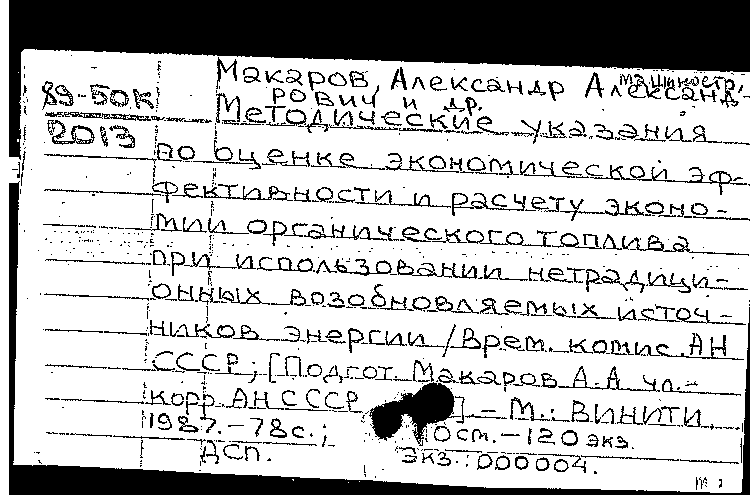 машиностр.
Макаров, Александр Александ-
89-50К
рович и др.
Методические указания
2013
по оценке экономической эф-
фективности и расчету эконо-
мии органического топлива
при использовании нетрадици-
онных возобновляемых источ-
ников энергии / Врем. комис. АН
СССР; [Подгот. Макаров А.А чл.-
корр. АН СССР ]. - М.: ВИНИТИ,
1987. - 78с.; Ост. - 120 экз.
ДСП. Экз.: 000004.